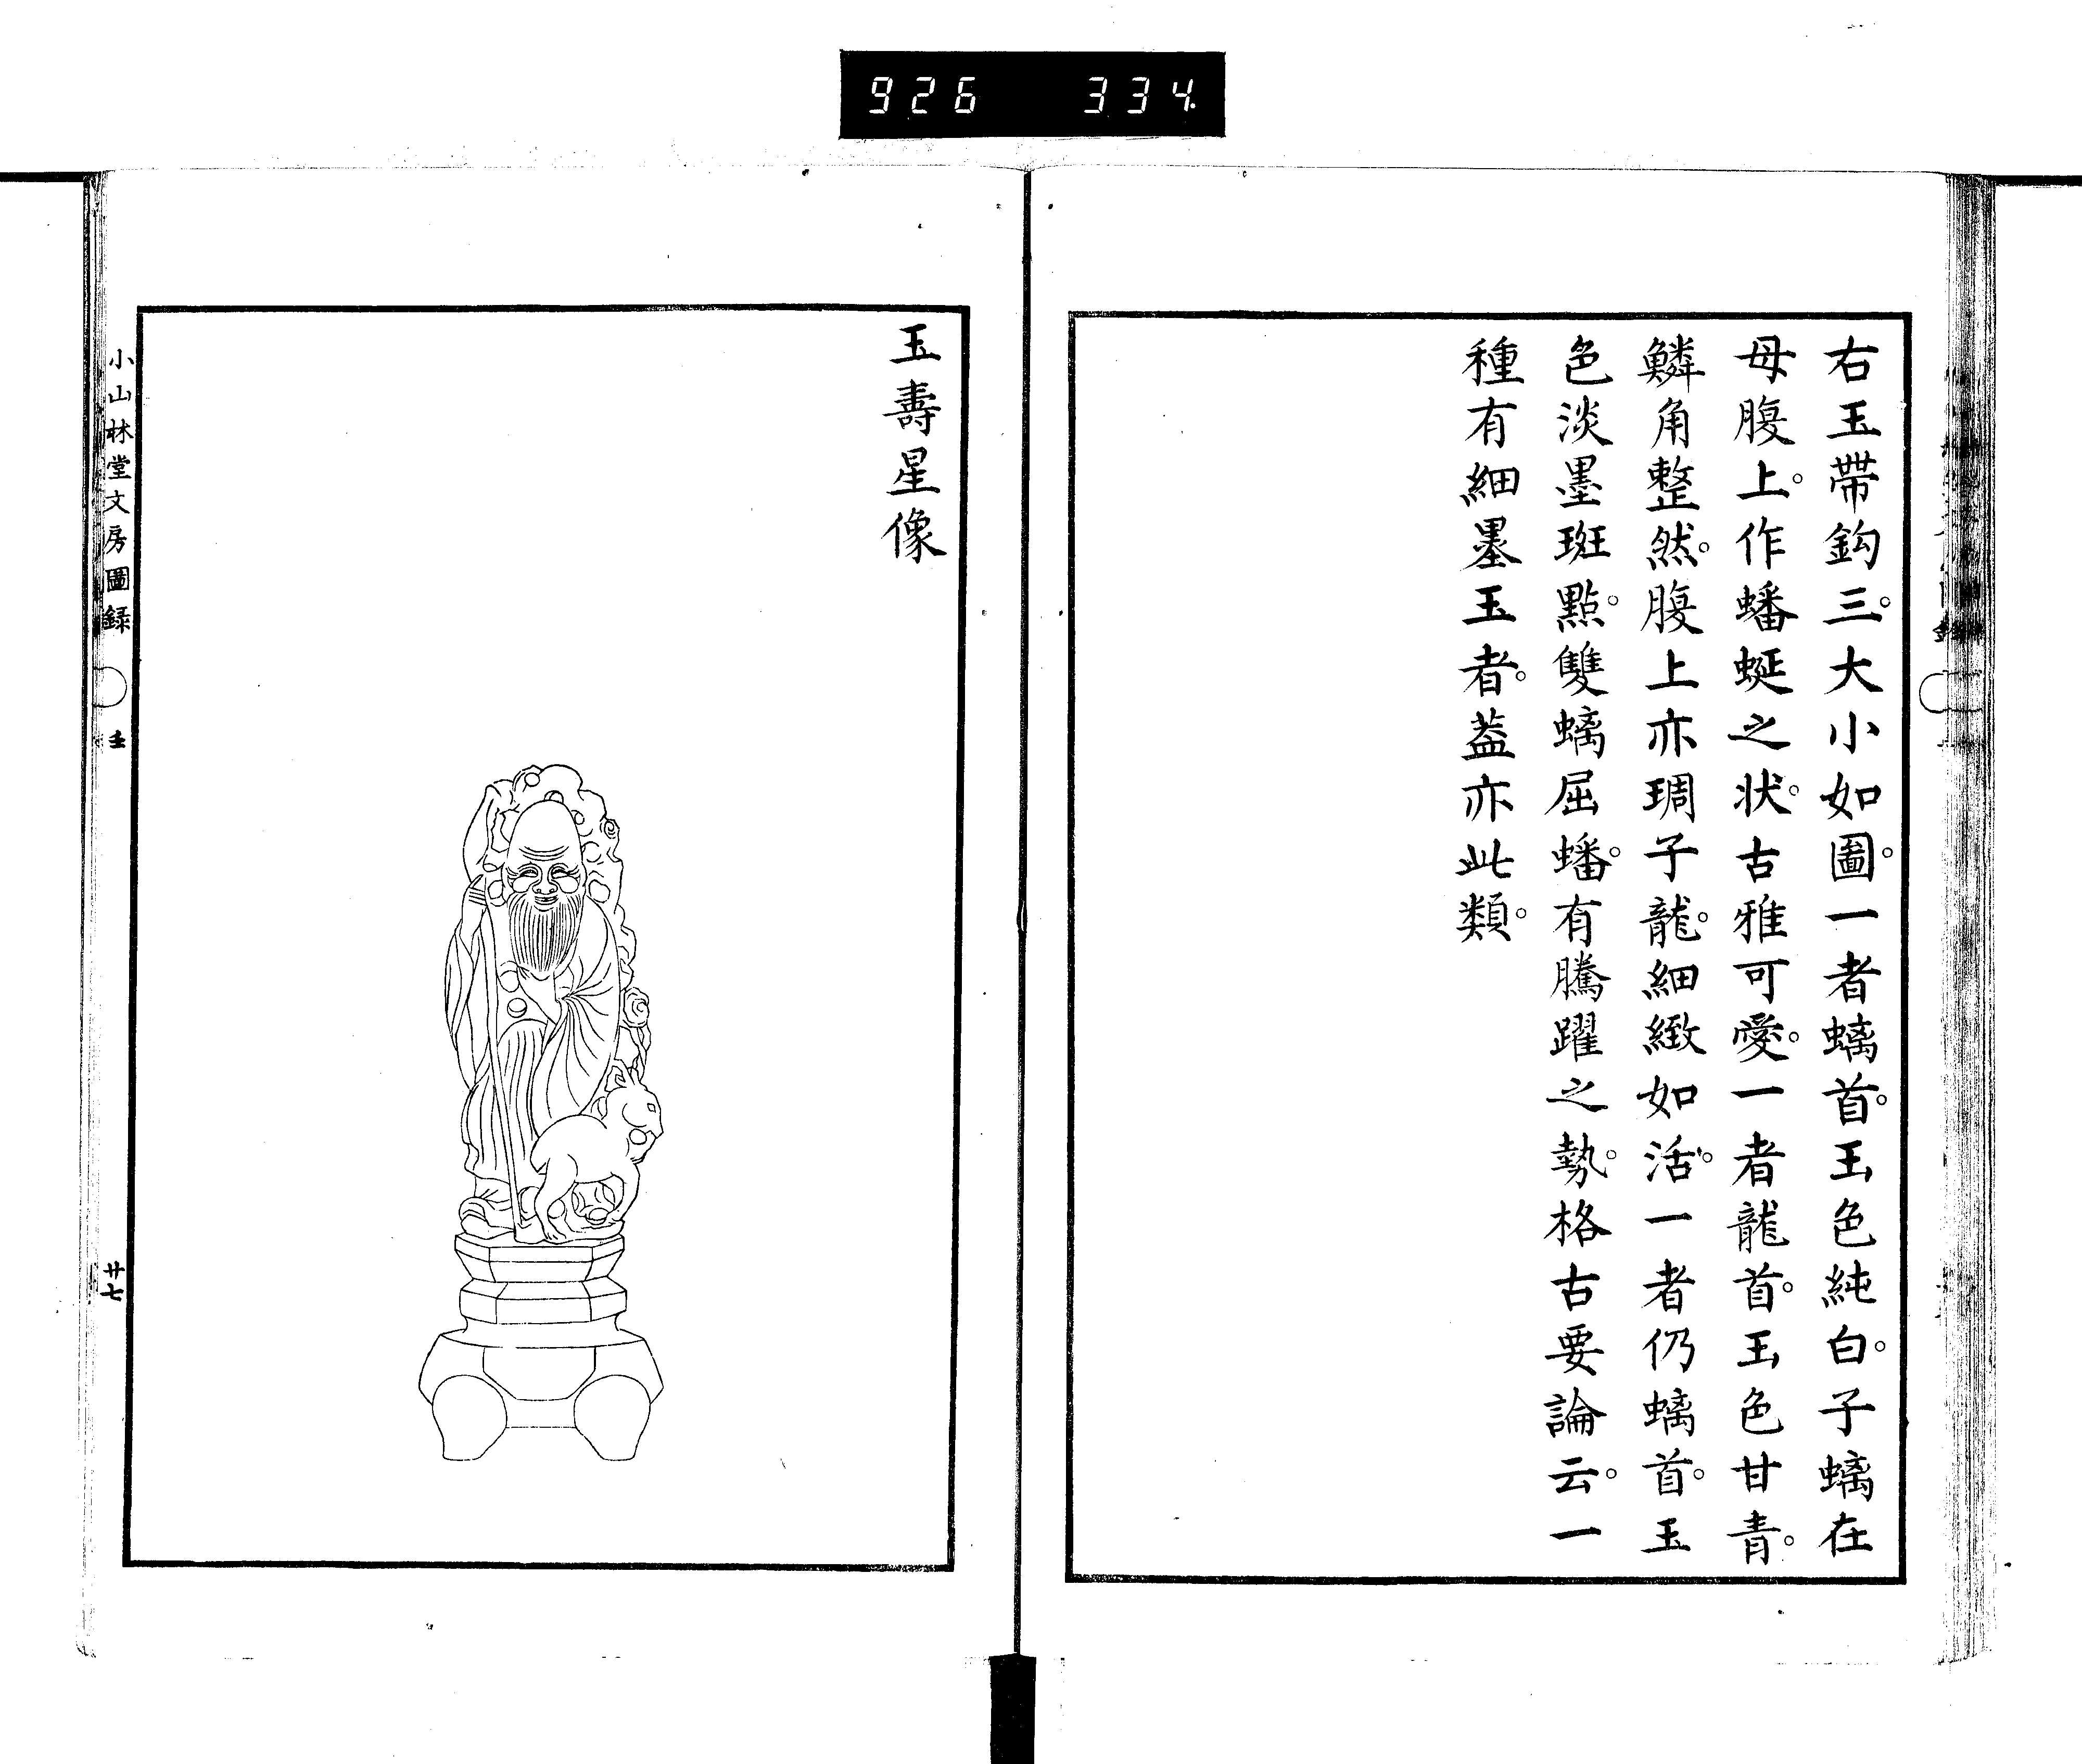 926 334
右玉帶鈎三。大小如圖。一者螭首。玉色純白。子螭在
母腹上。作蟠蜒之狀。古雅可愛。一者龍首。玉色甘青。
鱗角整然。腹上亦琱子龍。細緻如活。一者仍螭首。玉
色淡墨斑點。雙螭屈蟠。有騰躍之勢。格古要論云。一
種有細墨玉者。蓋亦此類。
玉壽星像
小山林堂文房圖録
壬
廿七